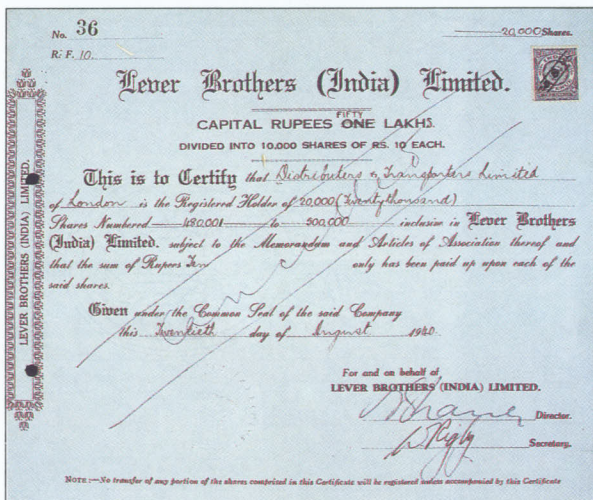 No. 36
20,000 Shares.
R. F. 10.
Lever Brothers (India) Limited.
FIFTY
CAPITAL RUPEES ONE LAKHS.
DIVIDED INTO 10,000 SHARES OF RS. 10 EACH.
This is to Certify that Distributers & Transporters Limited
of London is the Registered Holder of 20,000 (Twenty thousand)
Shares Numbered 480,001 to 500,000 inclusive in Lever Brothers
(India) Limited. subject to the Memorandum and Articles of Association thereof and
that the sum of Rupees Ten only has been paid up upon each of the
said shares.
Given under the Common Seal of the said Company
this Twentieth day of August 1940.
For and on behalf of
LEVER BROTHERS (INDIA) LIMITED.
Director.
Secretary.
NOTE :—No transfer of any portion of the shares comprised in this Certificate will be registered unless accompanied by this Certificate
LEVER BROTHERS (INDIA) LIMITED.